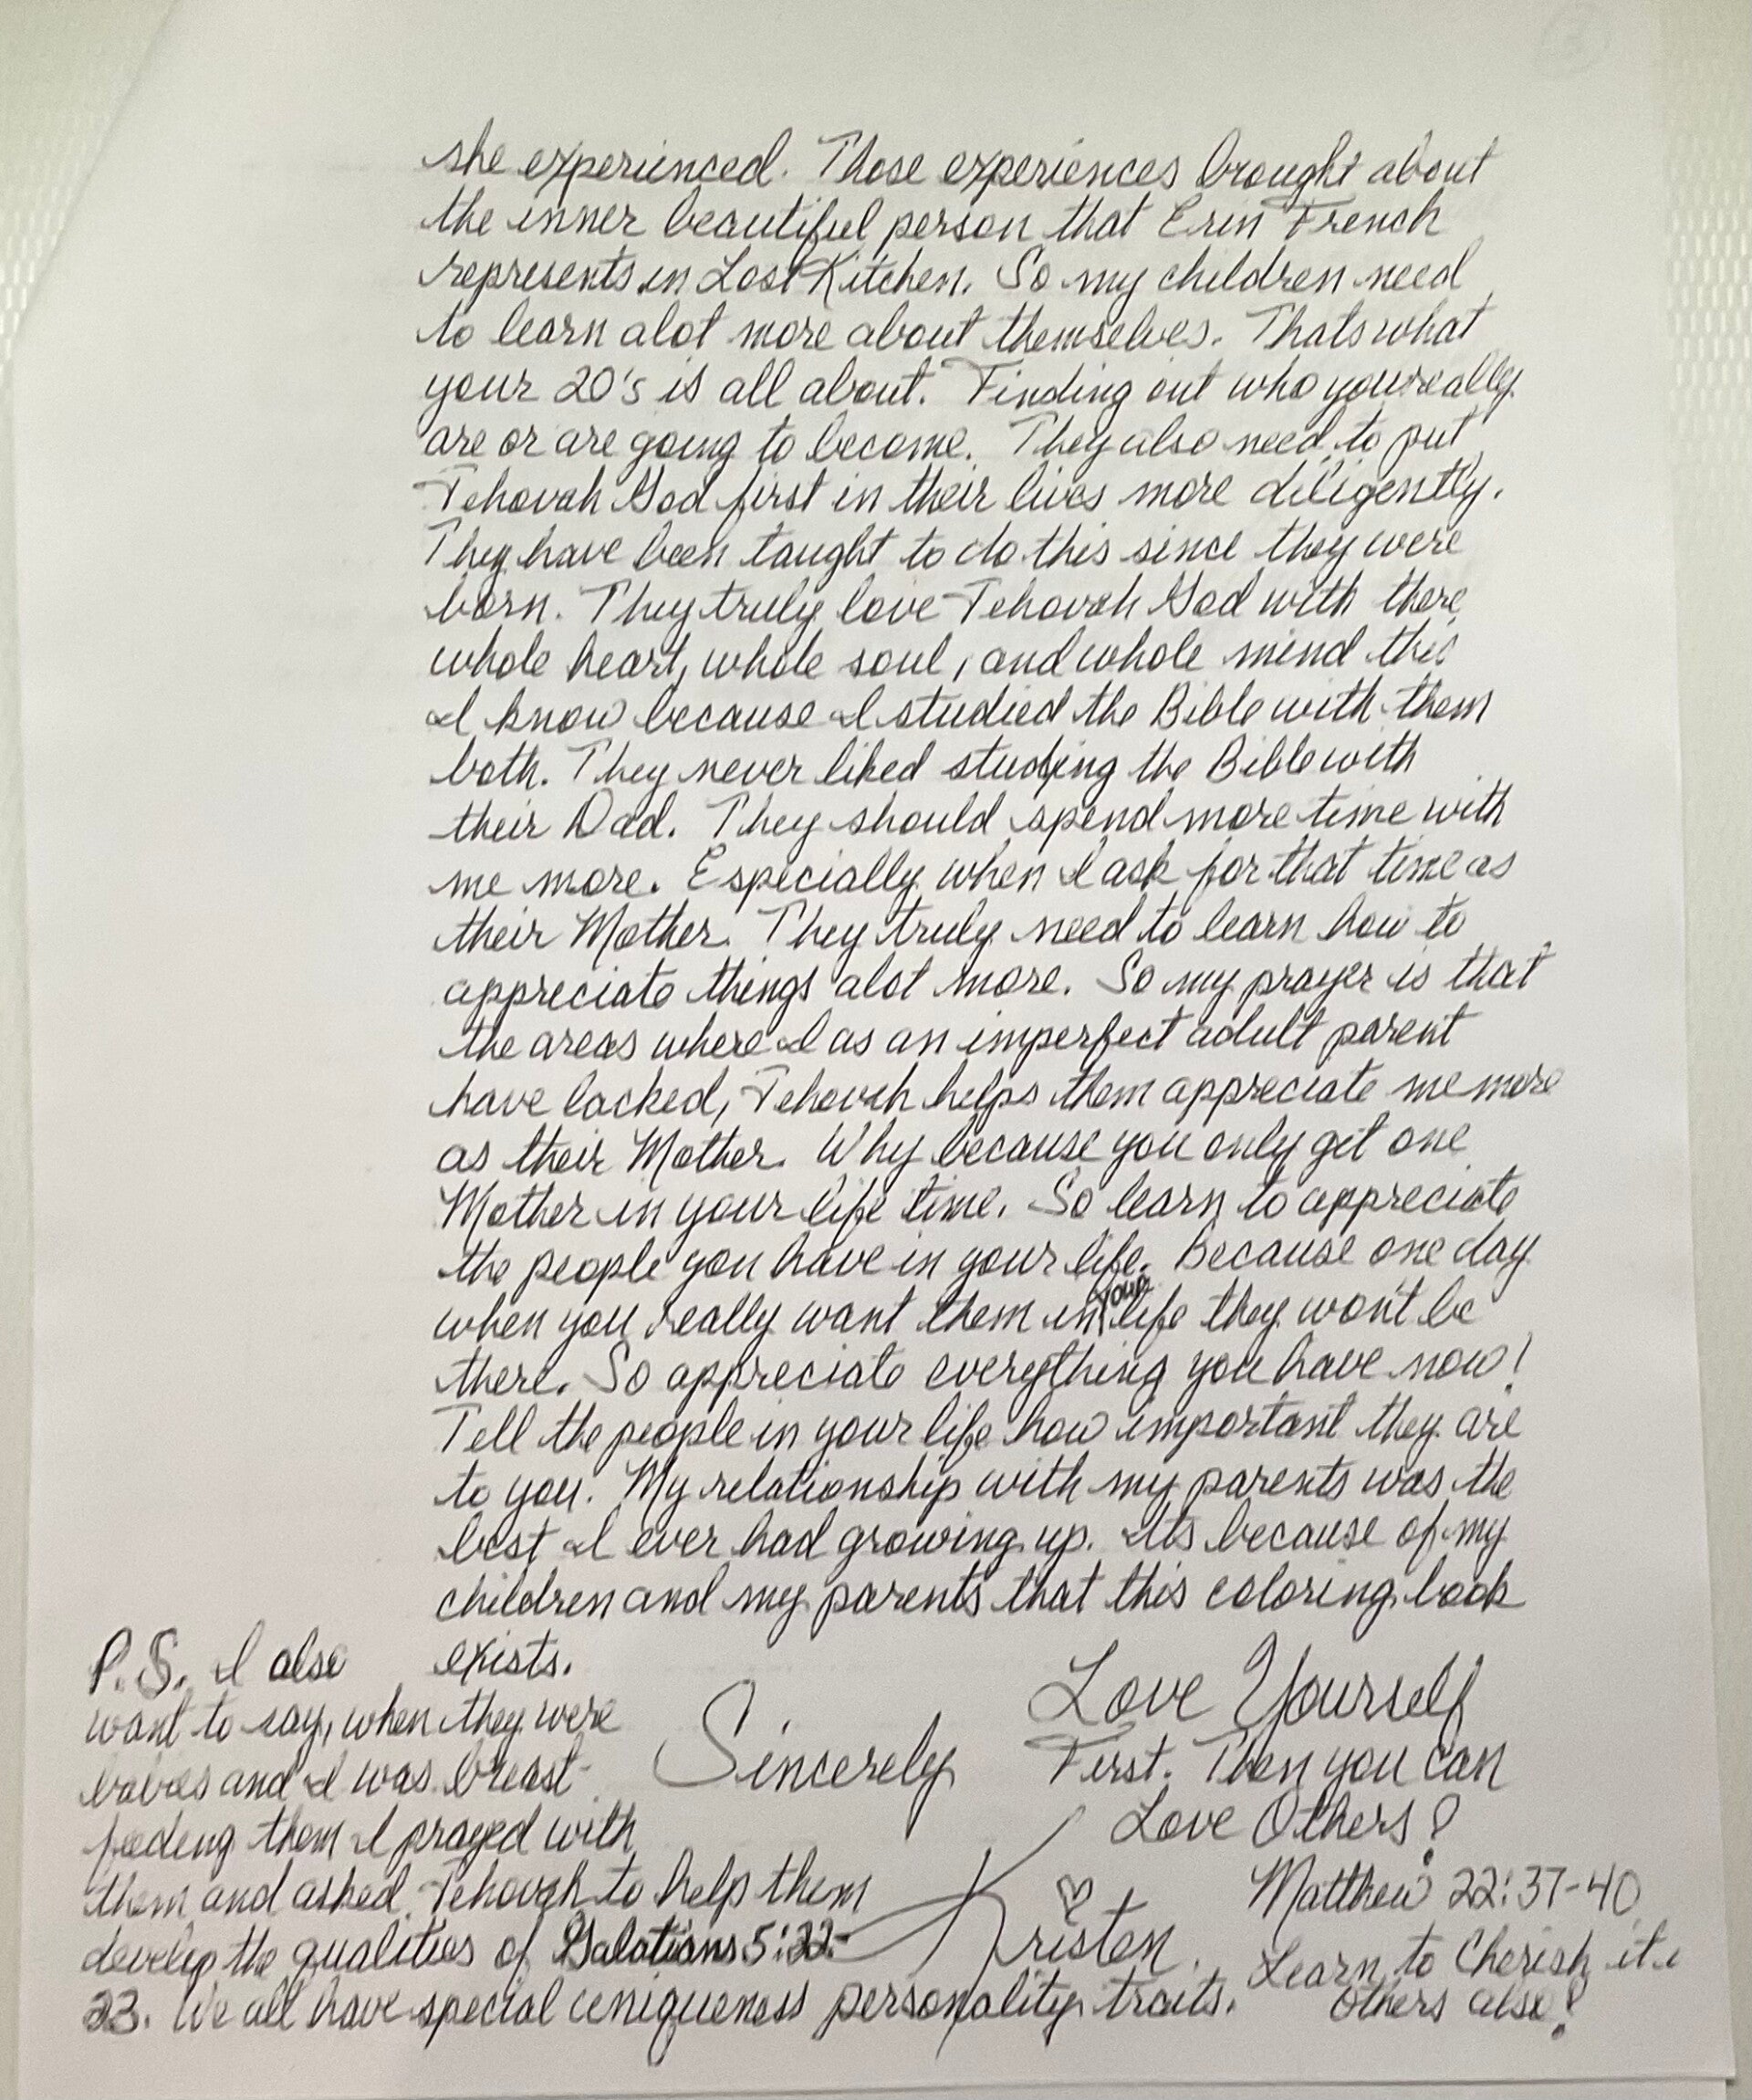 she experienced. Those experiences brought about
the inner beautiful person that Erin French
represents in Lost Kitchen. So my children need
to learn alot more about themselves. Thats what
your 20's is all about. Finding out who you really
are or are going to become. They also need to put
Jehovah God first in their lives more diligently.
They have been taught to do this since they were
born. They truly love Jehovah God with there
whole heart, whole soul, and whole mind this
I know because I studied the Bible with them
both. They never liked studing the Bible with
their Dad. They should spend more time with
me more. Especially when I ask for that time as
their Mother. They truly need to learn how to
appreciate things alot more. So my prayer is that
the areas where I as an imperfect adult parent
have lacked, Jehovah helps them appreciate me more
as their Mother. Why because you only get one
Mother in your life time. So learn to appreciate
the people you have in your life. Because one day
when you really want them in your life they won't be
there. So appreciate everything you have now!
Tell the people in your life how important they are
to you. My relationship with my parents was the
best I ever had growing up. Its because of my
children and my parents that this coloring book
exists.
Sincerely
Kristen
Love Yourself
First. Then you can
Love Others!
Matthew 22:37-40
Learn to Cherish
others also!
P.S. I also
want to say, when they were
babies and I was breast
feeding them I prayed with
them and asked Jehovah to help them
develop the qualities of Galatians 5:22-
23. We all have special uniqueness personality traits.